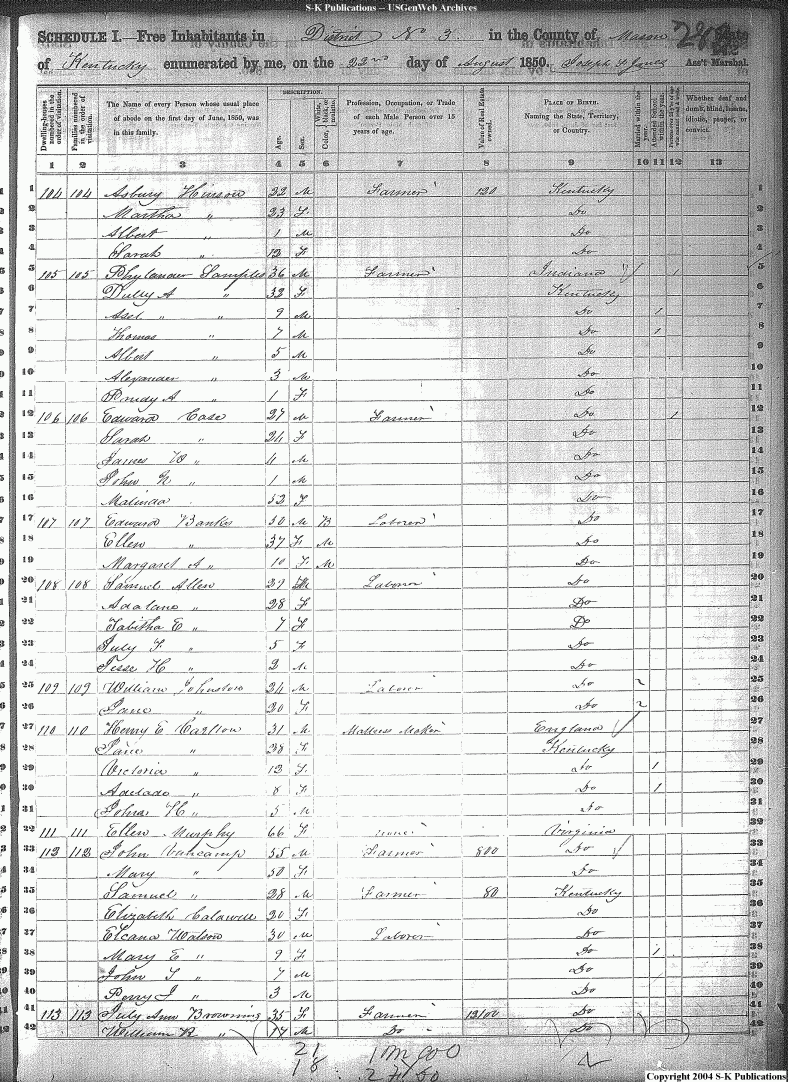 S-K Publications -- USGenWeb Archives
SCHEDULE I.—Free Inhabitants in District No 3 in the County of Mason State
of Kentucky enumerated by me, on the 22nd day of August 1850. Joseph F Jones Ass't Marshal.
Dwelling-houses numbered in the order of visitation.
Families numbered in the order of visitation.
The Name of every Person whose usual place of abode on the first day of June, 1850, was in this family.
DESCRIPTION.
Age.
Sex.
White, black, or mulatto.
Color,
Profession, Occupation, or Trade of each Male Person over 15 years of age.
Value of Real Estate owned.
PLACE OF BIRTH.
Naming the State, Territory, or Country.
Married within the year.
Attended School within the year.
Whether deaf and dumb, blind, insane, idiotic, pauper, or convict.
1 2 3 4 5 6 7 8 9 10 11 12 13
1 104 104 Asbury Hinson 22 M Farmer 120 Kentucky 1
2 Martha " 23 F Do 2
3 Albert " 1 M Do 3
4 Sarah " 12 F Do 4
5 105 105 Phylander Samples 36 M Farmer Indiana 1 5
6 Dully A " 32 F Kentucky 6
7 Asel " " 9 M Do 1 7
8 Thomas " 7 M Do 1 8
9 Albert " 5 M Do 9
10 Alexander " 3 M Do 10
11 Prudy A " 1 F Do 11
12 106 106 Edward Case 27 M Farmer Do 1 12
13 Sarah " 24 F Do 13
14 James W " 4 M Do 14
15 John N " 1 M Do 15
16 Malinda 52 F Do 16
17 107 107 Edward Banks 50 M B Laborer Do 17
18 Ellen " 37 F M Do 18
19 Margaret A " 10 F M Do 19
20 108 108 Samuel Allen 29 M Laborer Do 20
21 Adalane " 28 F Do 21
22 Tabitha E " 7 F Do 22
23 July F " 5 F Do 23
24 Jesse H " 2 M Do 24
25 109 109 William Johnston 24 M Laborer Do 25
26 Jane " 20 F Do 26
27 110 110 Henry E Carlton 31 M Mattress Maker England 27
28 Jane " 38 F Kentucky 28
29 Victoria " 12 F Do 1 29
30 Adelade " 8 F Do 1 30
31 John H " 5 M Do 31
32 111 111 Ellen Murphy 66 F none Virginia 32
33 112 112 John Vancamp 55 M Farmer 800 Do 33
34 Mary " 50 F Do 34
35 Samuel " 28 M Farmer 80 Kentucky 35
36 Elizabeth Calawell 20 F Do 36
37 Elcana Watson 30 M Laborer Do 37
38 Mary E " 9 F Do 1 38
39 John T " 7 M Do 39
40 Perry J " 3 M Do 40
41 113 113 July Ann Browning 35 F Farmer 12100 Do 41
42 William R " 17 M Do Do 42
21
18
Copyright 2004 S-K Publications